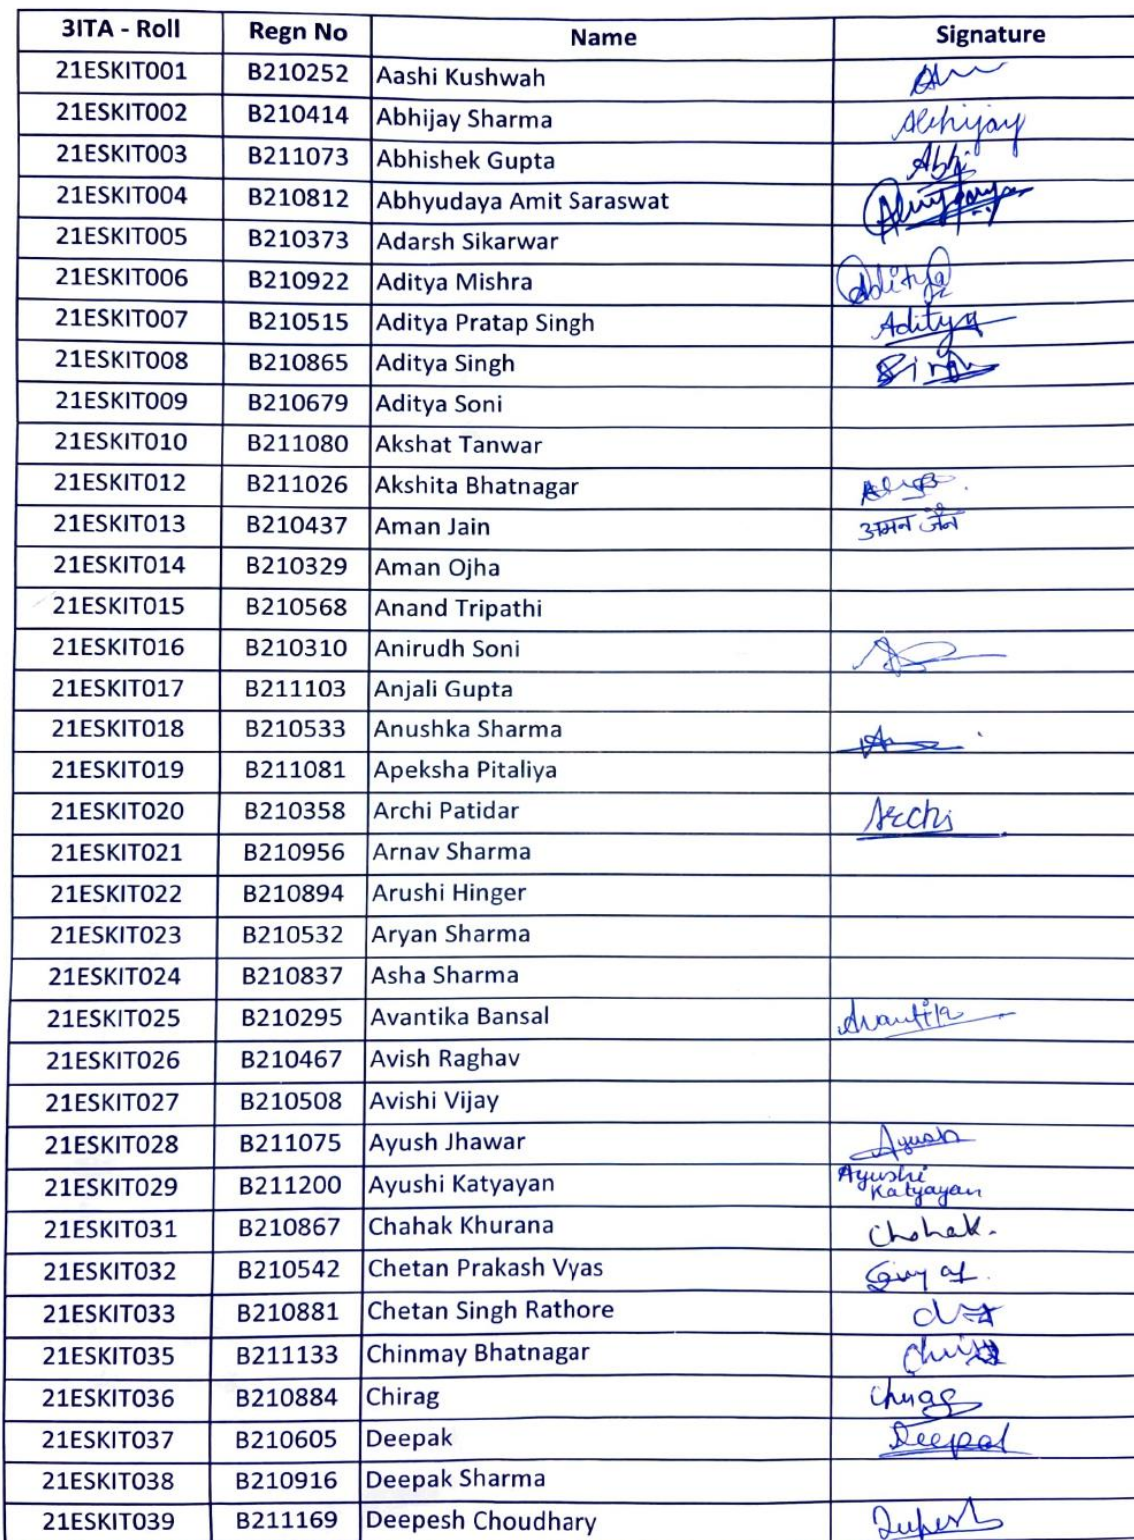 3ITA - Roll Regn No Name Signature
21ESKIT001 B210252 Aashi Kushwah
21ESKIT002 B210414 Abhijay Sharma Abhijay
21ESKIT003 B211073 Abhishek Gupta Abhi
21ESKIT004 B210812 Abhyudaya Amit Saraswat
21ESKIT005 B210373 Adarsh Sikarwar
21ESKIT006 B210922 Aditya Mishra Aditya
21ESKIT007 B210515 Aditya Pratap Singh Aditya
21ESKIT008 B210865 Aditya Singh Singh
21ESKIT009 B210679 Aditya Soni
21ESKIT010 B211080 Akshat Tanwar
21ESKIT012 B211026 Akshita Bhatnagar
21ESKIT013 B210437 Aman Jain अमन जैन
21ESKIT014 B210329 Aman Ojha
21ESKIT015 B210568 Anand Tripathi
21ESKIT016 B210310 Anirudh Soni
21ESKIT017 B211103 Anjali Gupta
21ESKIT018 B210533 Anushka Sharma
21ESKIT019 B211081 Apeksha Pitaliya
21ESKIT020 B210358 Archi Patidar Archi
21ESKIT021 B210956 Arnav Sharma
21ESKIT022 B210894 Arushi Hinger
21ESKIT023 B210532 Aryan Sharma
21ESKIT024 B210837 Asha Sharma
21ESKIT025 B210295 Avantika Bansal Avantika
21ESKIT026 B210467 Avish Raghav
21ESKIT027 B210508 Avishi Vijay
21ESKIT028 B211075 Ayush Jhawar Ayush
21ESKIT029 B211200 Ayushi Katyayan Ayushi Katyayan
21ESKIT031 B210867 Chahak Khurana Chahak.
21ESKIT032 B210542 Chetan Prakash Vyas
21ESKIT033 B210881 Chetan Singh Rathore
21ESKIT035 B211133 Chinmay Bhatnagar
21ESKIT036 B210884 Chirag Chirag
21ESKIT037 B210605 Deepak Deepak
21ESKIT038 B210916 Deepak Sharma
21ESKIT039 B211169 Deepesh Choudhary Deepesh